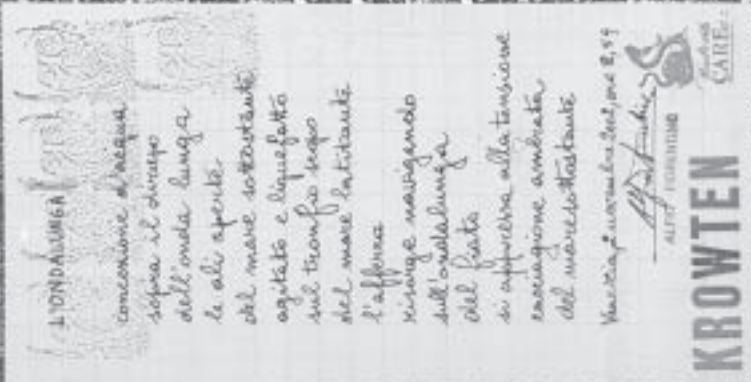 L'ONDALUNGA
concezione d'acqua
sopra il
dell'onda lunga
le ali aperte
del mare sottostante
agitato e liquefatto
sul tronfio
del mare latitante
l'afferra
risorge navigando
sull'ondalunga
del fiato
si appressa alla tensione
ambrata
del mare sottostante
Venezia, 2 novembre ore 8,59
ALFIO FIORENTINO
CARE
KROWTEN